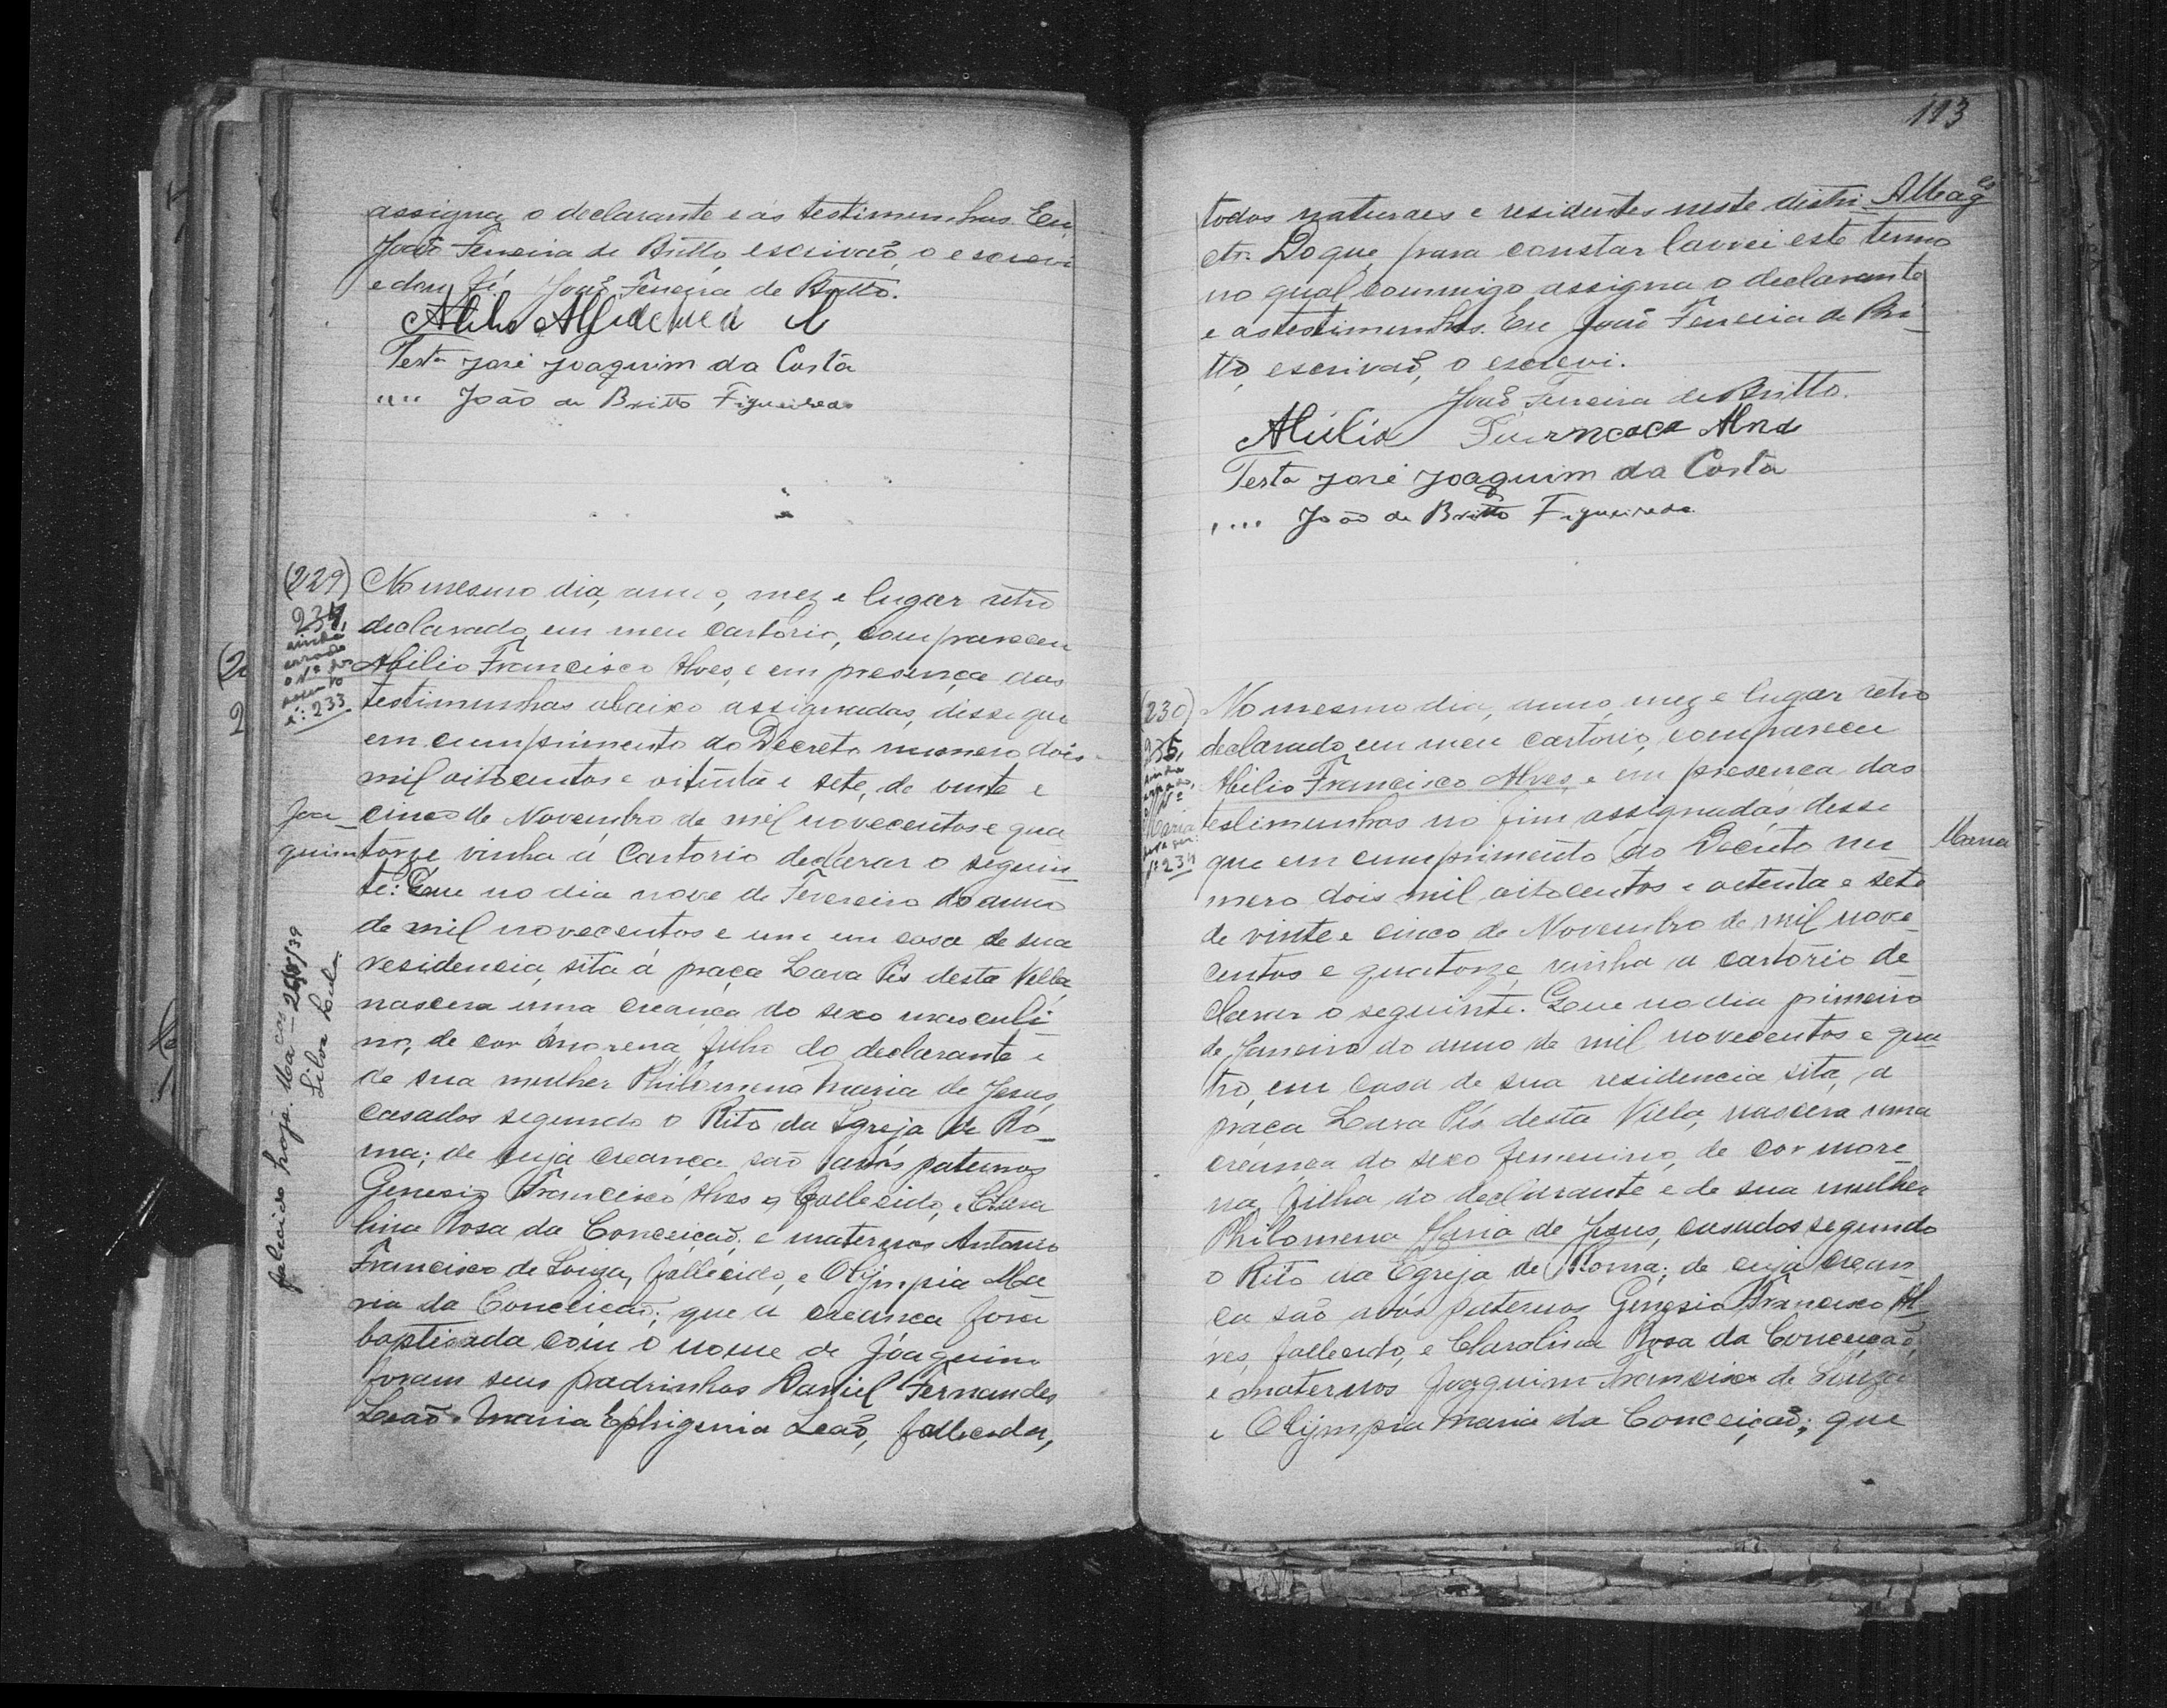 assigna o declarante e as testimunhas. Eu,
João Ferreira de Britto, escrivão, o escrevi
e dou fé. João Ferreira de Britto.
Testa José Joaquim da Costa
"" João de Britto Figueiredo
(229)
234,
ainda
errado
o nº do
é: 233
Joa-
quim
falecido hoje.
Silva
No mesmo dia, anno, mez e lugar retro
declarado, em meu cartorio, compareceu
Abilio Francisco Alves, e em presença das
testimunhas abaixo assignadas, disse que
em cumprimento do Decreto numero dois
mil oitocentos e oitenta e sete, de vinte e
cinco de Novembro de mil novecentos e qua-
torze vinha á Cartorio declarar o seguin-
te: Que no dia nove de Fevereiro do anno
de mil novecentos e um em casa de sua
residencia, sita á praça Lava Pés desta Villa,
nascera uma creança do sexo masculi-
no, de cor morena, filho do declarante e
de sua mulher Philomena Maria de Jesus,
casados segundo o Rito da Igreja de Ro-
ma; de cuja creança são avós paternos
Genesio Francisco Alves, fallecido, e Clara
lina Rosa da Conceição; e maternos Antonio
Francisco de Souza, fallecido, e Olympia Ma-
ria da Conceição; que a creança fora
baptisada com o nome de Joaquim
foram seus padrinhos Daniel Fernandes
Leão e Maria Ephigenia Leão, fallecidos,
113
todos naturaes e residentes neste distri-
cto. Do que para constar lavrei este termo
no qual commigo assigna o declarante
e as testimunhas. Eu João Ferreira de Bri-
tto, escrivão, o escrevi.
João Ferreira de Britto.
Testa José Joaquim da Costa
"" João de Britto Figueiredo
(230)
235,
ainda
errado,
Maria
234
Maria
No mesmo dia, anno, mez e lugar retro
declarado, em meu cartorio, compareceu
Abilio Francisco Alves, e em presença das
testimunhas no fim assignadas, disse
que em cumprimento do Decreto nu-
mero dois mil oitocentos e oitenta e sete
de vinte e cinco de Novembro de mil nove-
centos e quatorze, vinha a cartorio de-
clarar o seguinte. Que no dia primeiro
de Janeiro do anno de mil novecentos e qua-
tro, em casa de sua residencia sita, a
praça Lava Pés desta Villa, nascera uma
creança do sexo femenino, de cor more-
na, filha do declarante e de sua mulher
Philomena Maria de Jesus, casados segundo
o Rito da Egreja de Roma; de cuja crean-
ça são avós paternos Genesio Francisco Al-
ves, fallecido, e Claralina Rosa da Conceição,
e maternos Joaquim Francisco de Souza
e Olympia Maria da Conceição; que